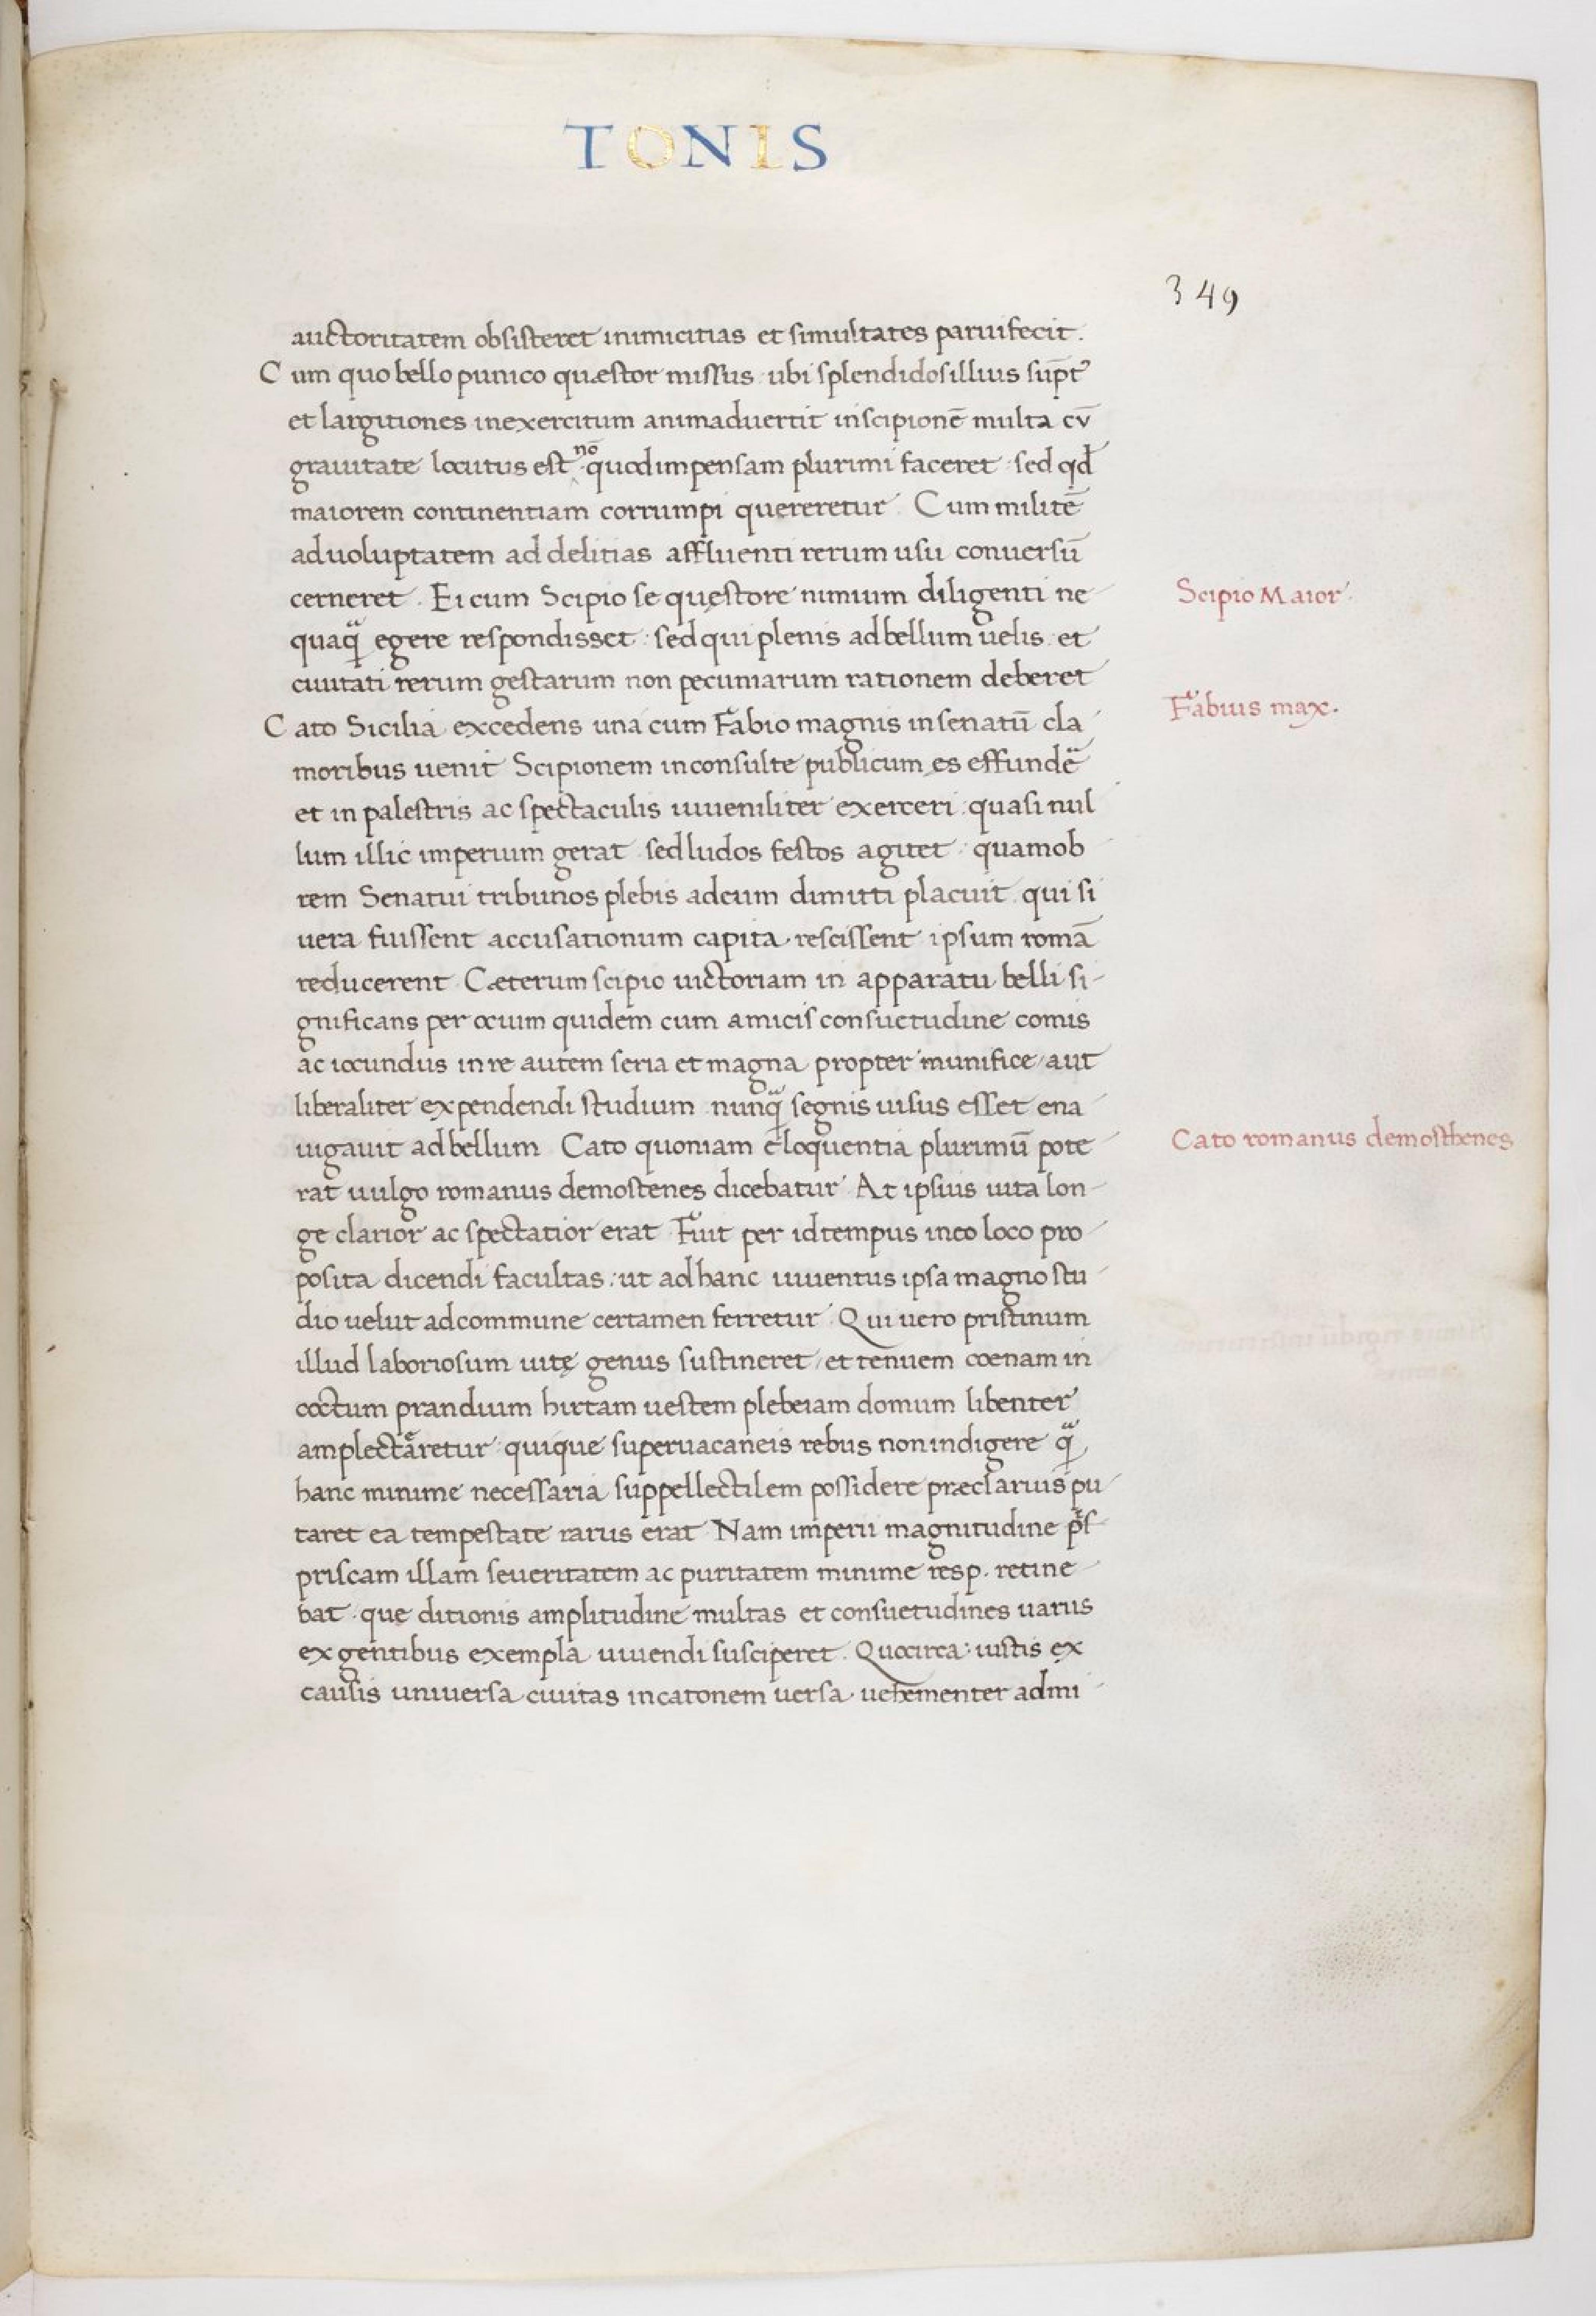 TONIS
349
auctoritatem obsisteret inimicitias et simultates paruifecit.
Cum quo bello punico quæstor missus ubi splendidos illius sūpt⁹
et largitiones in exercitum animaduertit in scipionē multa cū
grauitate locutus est nō quod impensam plurimi faceret sed qd̄
maiorem continentiam corrumpi quereretur. Cum militē
ad uoluptatem ad delitias affluenti rerum usu conuersū
cerneret. Ei cum Scipio se quęstore nimium diligenti ne
quaq̃ egere respondisset: sed qui plenis ad bellum uelis et
ciuitati rerum gestarum non pecuniarum rationem deberet
Cato Sicilia excedens una cum Fabio magnis in senatū cla
moribus uenit Scipionem inconsulte publicum es effundē
et in palestris ac spectaculis iuueniliter exerceri: quasi nul
lum illic imperium gerat sed ludos festos agitet: quamob
rem Senatui tribunos plebis ad eum dimitti placuit qui si
uera fuissent accusationum capita rescissent ipsum romā
reducerent Cæterum scipio uictoriam in apparatu belli si-
gnificans per ocium quidem cum amicis consuetudine comis
ac iocundus in re autem seria et magna propter munifice aut
liberaliter expendendi studium nunq̃ segnis uisus esset ena
uigauit ad bellum Cato quoniam eloquentia plurimū pote
rat uulgo romanus demostenes dicebatur At ipsius uita lon-
ge clarior ac spectatior erat Fuit per id tempus in eo loco pro
posita dicendi facultas: ut ad hanc iuuentus ipsa magno stu
dio uelut ad commune certamen ferretur. Qui uero pristinum
illud laboriosum uitę genus sustineret et tenuem coenam in
coctum prandium hirtam uestem plebeiam domum libenter
amplectaretur quique superuacaneis rebus non indigere q̃
hanc minime necessaria suppellectilem possidere præclarius pu
taret ea tempestate rarus erat Nam imperii magnitudine
priscam illam seueritatem ac puritatem minime resp. retine
bat que ditionis amplitudine multas et consuetudines uariis
ex gentibus exempla uiuendi susciperet. Quocirca: iustis ex
causis uniuersa ciuitas in catonem uersa uehementer admi
Scipio Maior.
Fabius max.
Cato romanus demosthenes